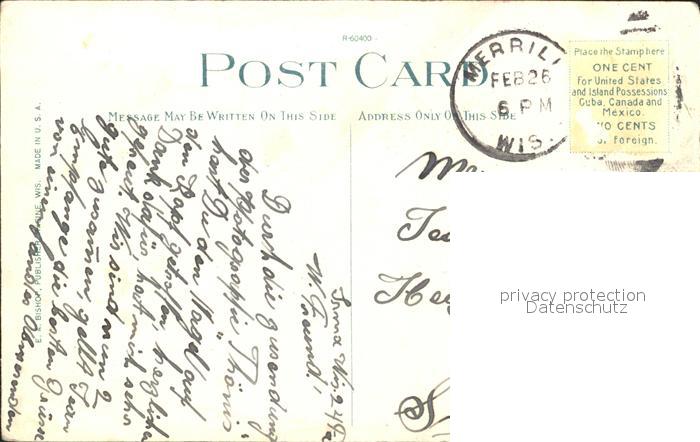 R-60400
POST CARD
MESSAGE MAY BE WRITTEN ON THIS SIDE
ADDRESS ONLY ON THIS SIDE
MERRILL
FEB 26
6 PM
WIS.
Place the Stamp here
ONE CENT
For United States
and Island Possessions
Cuba, Canada and
Mexico.
TWO CENTS
Foreign.
MADE IN U. S. A.
PUBLISHER, RACINE, WIS.
Irma Wis 24 Feb
W. Freund!
Durch die Zusendung
der Photographie Thönis
hast Du den Nagel auf
den Kopf getroffen herzlichen
Dank dafür hast mich sehr
gefreut. Wir sind nun 2
gute zusammen, gellt Jean
Empfange die besten Grüsse
von einer
privacy protection
Datenschutz